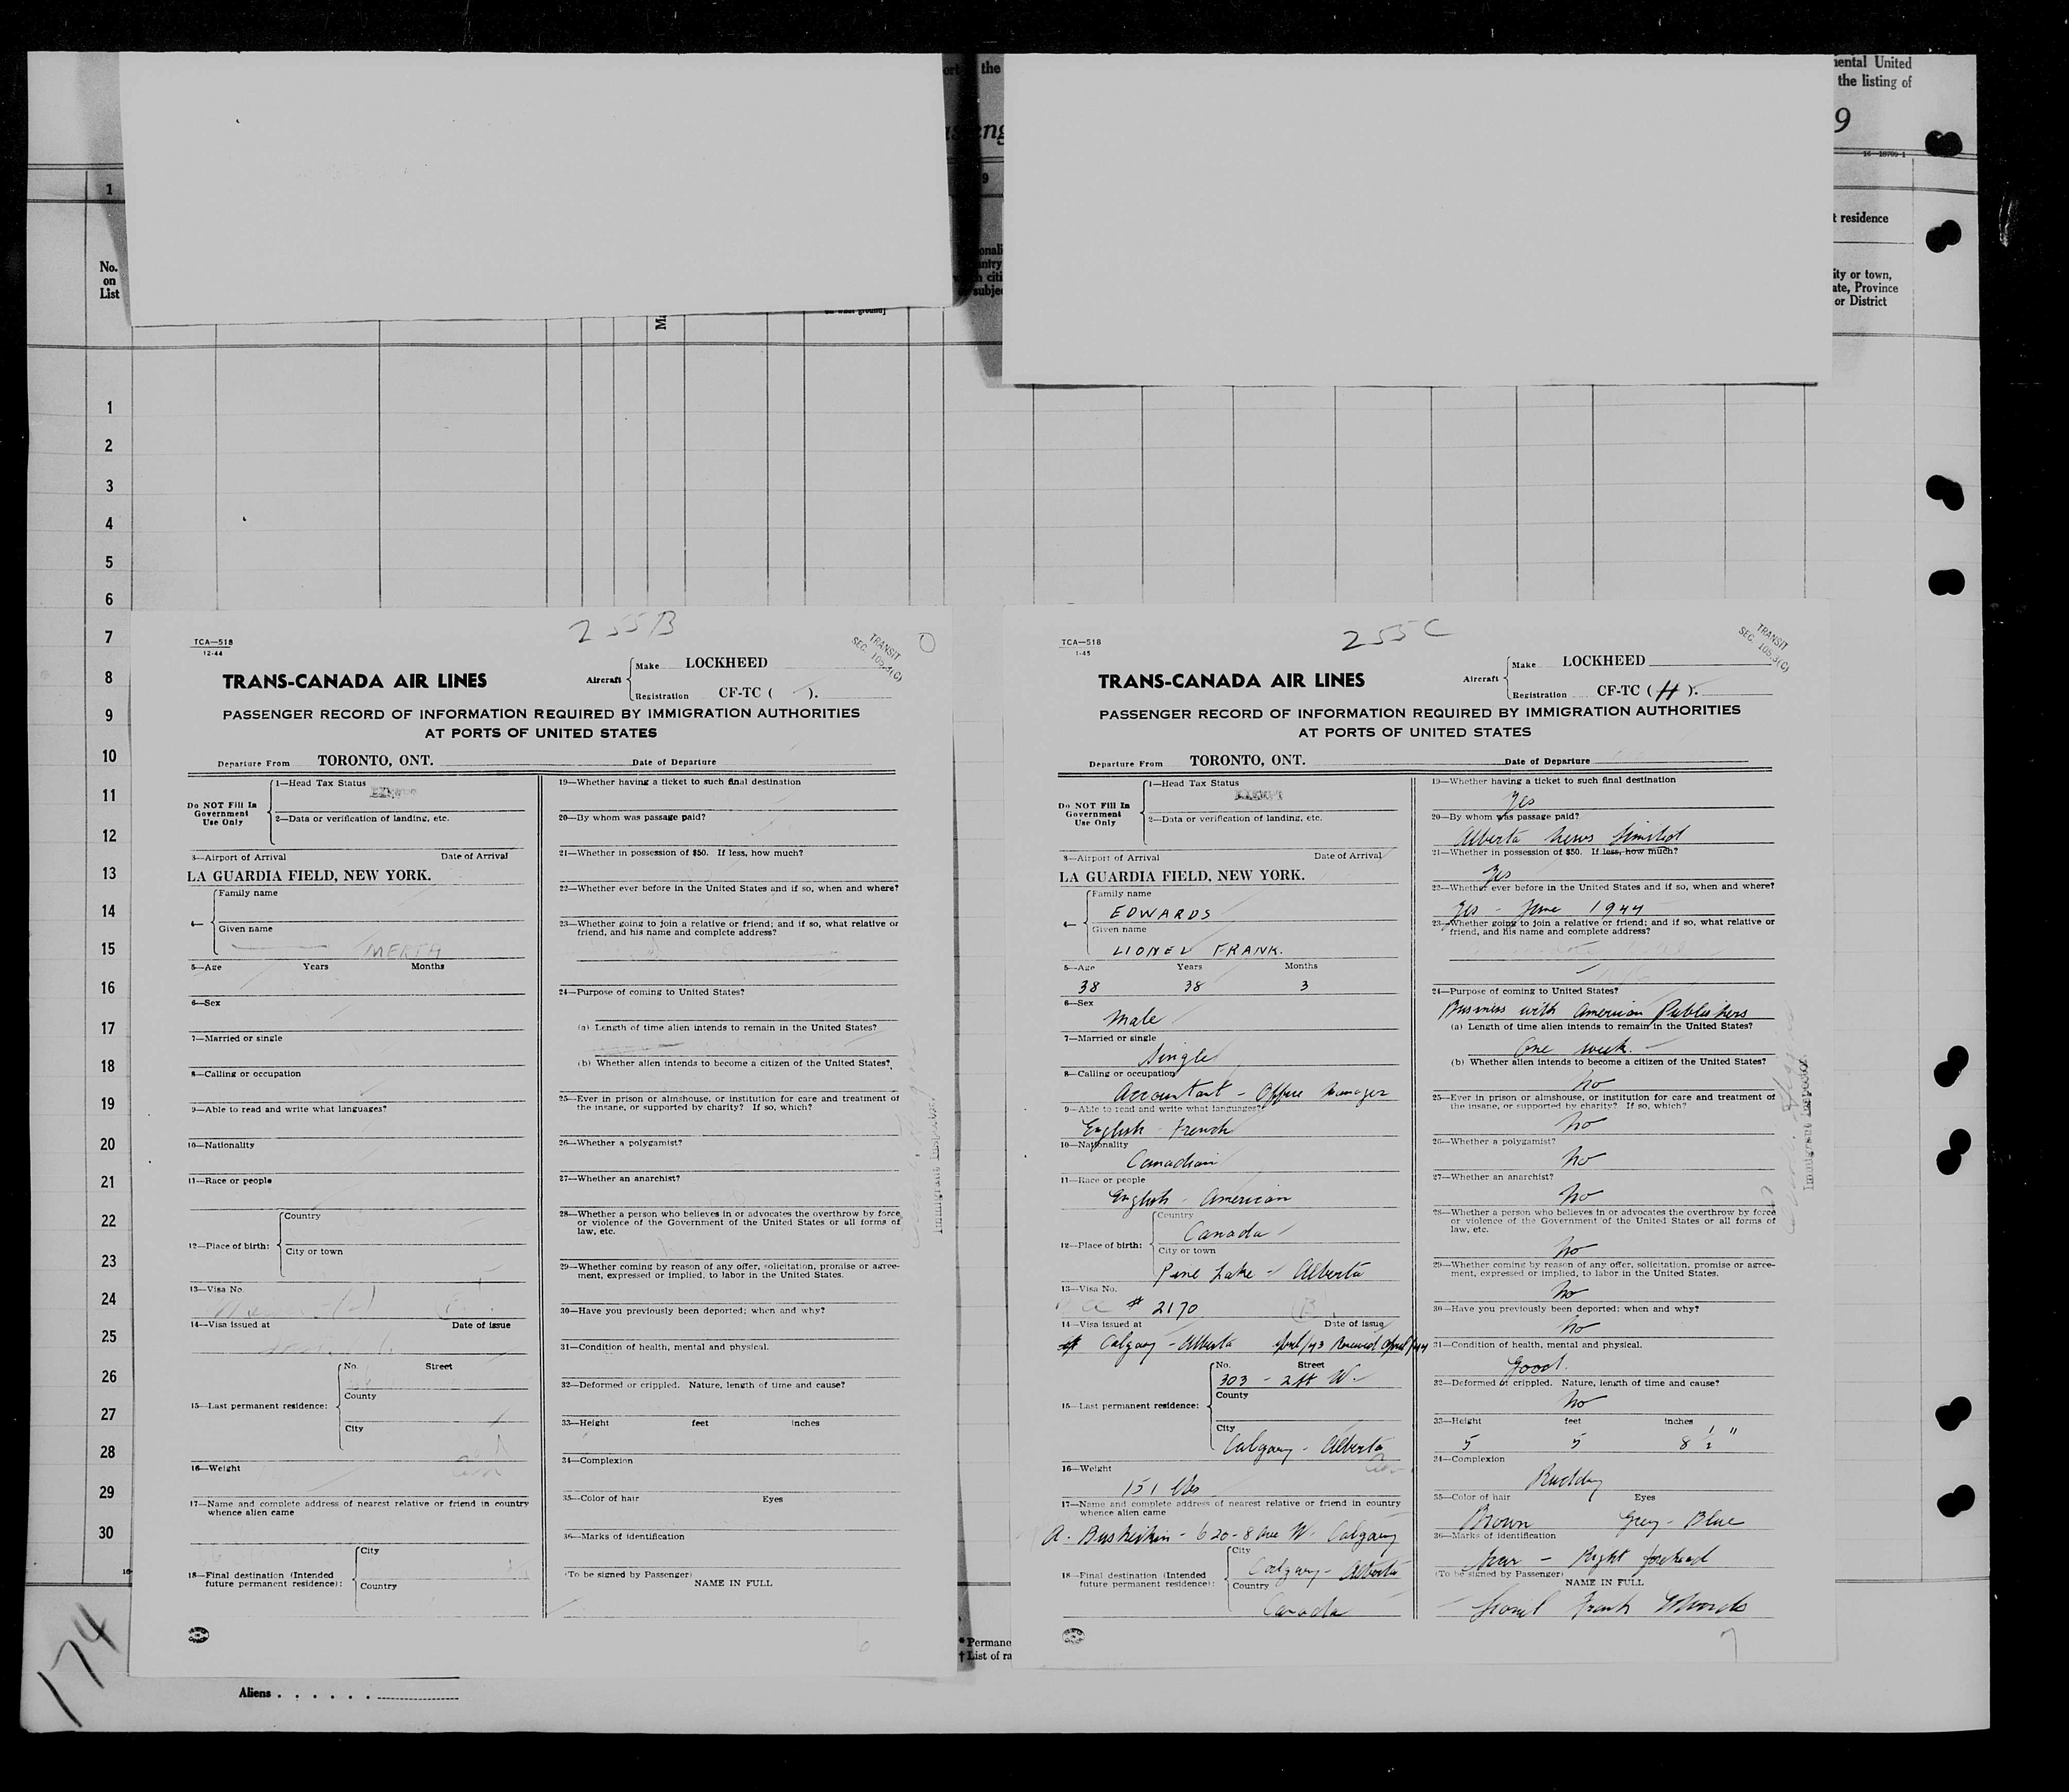 ort
the
mental United
the listing of
asseng
9
16—18709-1
1
9
t residence
No.
on
List
ity or town,
ate, Province
or District
1
2
3
4
5
6
7
8
9
10
11
12
13
14
15
16
17
18
19
20
21
22
23
24
25
26
27
28
29
30
174
Aliens . . . . . .
255B
TCA—518
12-44
TRANSIT
SEC. 105.3(C)
TRANS-CANADA AIR LINES
Aircraft
Make LOCKHEED
Registration CF-TC ( ).
PASSENGER RECORD OF INFORMATION REQUIRED BY IMMIGRATION AUTHORITIES
AT PORTS OF UNITED STATES
Departure From TORONTO, ONT. Date of Departure
Do NOT Fill In
Government
Use Only
1—Head Tax Status
2—Data or verification of landing, etc.
3—Airport of Arrival Date of Arrival
LA GUARDIA FIELD, NEW YORK.
4—
Family name
Given name
5—Age Years Months
6—Sex
7—Married or single
8—Calling or occupation
9—Able to read and write what languages?
10—Nationality
11—Race or people
12—Place of birth:
Country
City or town
13—Visa No.
14—Visa issued at Date of issue
15—Last permanent residence:
No. Street
County
City
16—Weight
17—Name and complete address of nearest relative or friend in country
whence alien came
18—Final destination (Intended
future permanent residence):
City
Country
19—Whether having a ticket to such final destination
20—By whom was passage paid?
21—Whether in possession of $50. If less, how much?
22—Whether ever before in the United States and if so, when and where?
23—Whether going to join a relative or friend; and if so, what relative or
friend, and his name and complete address?
24—Purpose of coming to United States?
(a) Length of time alien intends to remain in the United States?
(b) Whether alien intends to become a citizen of the United States?
25—Ever in prison or almshouse, or institution for care and treatment of
the insane, or supported by charity? If so, which?
26—Whether a polygamist?
27—Whether an anarchist?
28—Whether a person who believes in or advocates the overthrow by force
or violence of the Government of the United States or all forms of
law, etc.
29—Whether coming by reason of any offer, solicitation, promise or agree-
ment, expressed or implied, to labor in the United States.
30—Have you previously been deported; when and why?
31—Condition of health, mental and physical.
32—Deformed or crippled. Nature, length of time and cause?
33—Height feet inches
34—Complexion
35—Color of hair Eyes
36—Marks of identification
(To be signed by Passenger)
NAME IN FULL
Immigrant Inspector
255C
TCA—518
1-45
TRANSIT
SEC. 105.3(C)
TRANS-CANADA AIR LINES
Aircraft
Make LOCKHEED
Registration CF-TC ( H ).
PASSENGER RECORD OF INFORMATION REQUIRED BY IMMIGRATION AUTHORITIES
AT PORTS OF UNITED STATES
Departure From TORONTO, ONT. Date of Departure
Do NOT Fill In
Government
Use Only
1—Head Tax Status
EXEMPT
2—Data or verification of landing, etc.
3—Airport of Arrival Date of Arrival
LA GUARDIA FIELD, NEW YORK.
4—
Family name
EDWARDS
Given name
LIONEL FRANK.
5—Age Years Months
38 38 3
6—Sex
Male
7—Married or single
Single
8—Calling or occupation
Accountant - Office Manager
9—Able to read and write what languages?
English - French
10—Nationality
Canadian
11—Race or people
English - American
12—Place of birth:
Country
Canada
City or town
Pine Lake - Alberta
13—Visa No.
# 2170
14—Visa issued at Date of issue
Calgary - Alberta April/43 Renewed April/44
15—Last permanent residence:
No. Street
303 - 2 St W.
County
City
Calgary - Alberta
16—Weight
151 lbs
17—Name and complete address of nearest relative or friend in country
whence alien came
A. - 620 - 8 Ave W. Calgary
18—Final destination (Intended
future permanent residence):
City
Calgary - Alberta
Country
Canada
19—Whether having a ticket to such final destination
Yes
20—By whom was passage paid?
Alberta News Limited
21—Whether in possession of $50. If less, how much?
Yes
22—Whether ever before in the United States and if so, when and where?
Yes - June 1944
23—Whether going to join a relative or friend; and if so, what relative or
friend, and his name and complete address?
24—Purpose of coming to United States?
Business with American Publishers
(a) Length of time alien intends to remain in the United States?
One week.
(b) Whether alien intends to become a citizen of the United States?
No
25—Ever in prison or almshouse, or institution for care and treatment of
the insane, or supported by charity? If so, which?
No
26—Whether a polygamist?
No
27—Whether an anarchist?
No
28—Whether a person who believes in or advocates the overthrow by force
or violence of the Government of the United States or all forms of
law, etc.
No
29—Whether coming by reason of any offer, solicitation, promise or agree-
ment, expressed or implied, to labor in the United States.
No
30—Have you previously been deported; when and why?
No
31—Condition of health, mental and physical.
Good.
32—Deformed or crippled. Nature, length of time and cause?
No
33—Height feet inches
5 5 8 ½ "
34—Complexion
Ruddy
35—Color of hair Eyes
Brown Grey - Blue
36—Marks of identification
Scar - Right forehead
(To be signed by Passenger)
NAME IN FULL
Lionel Frank Edwards
Immigrant Inspector
7
* Permane
† List of ra